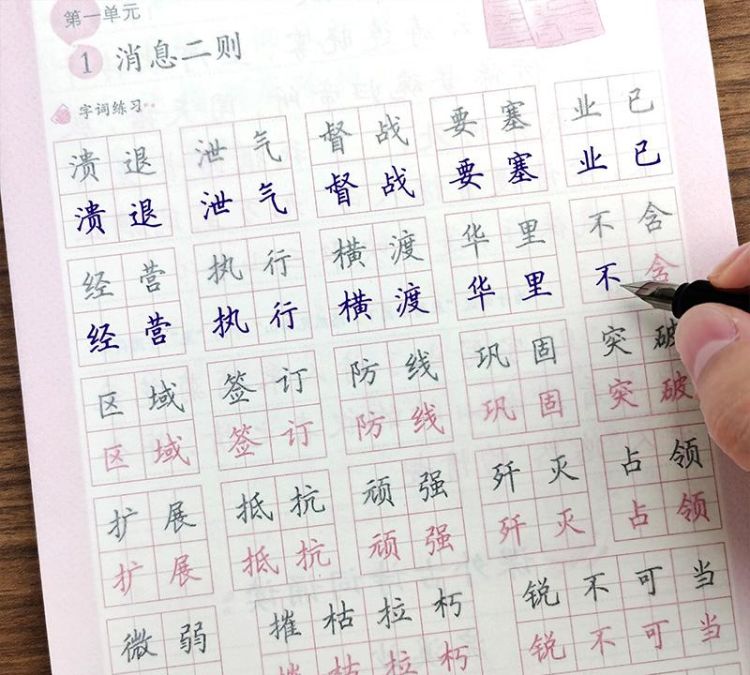 第一单元
1 消息二则
字词练习
溃退 泄气 督战 要塞 业已
溃退 泄气 督战 要塞 业已
经营 执行 横渡 华里 不含
经营 执行 横渡 华里 不含
区域 签订 防线 巩固 突破
区域 签订 防线 巩固 突破
扩展 抵抗 顽强 歼灭 占领
扩展 抵抗 顽强 歼灭 占领
微弱 摧枯拉朽 锐不可当
摧枯拉朽 锐不可当